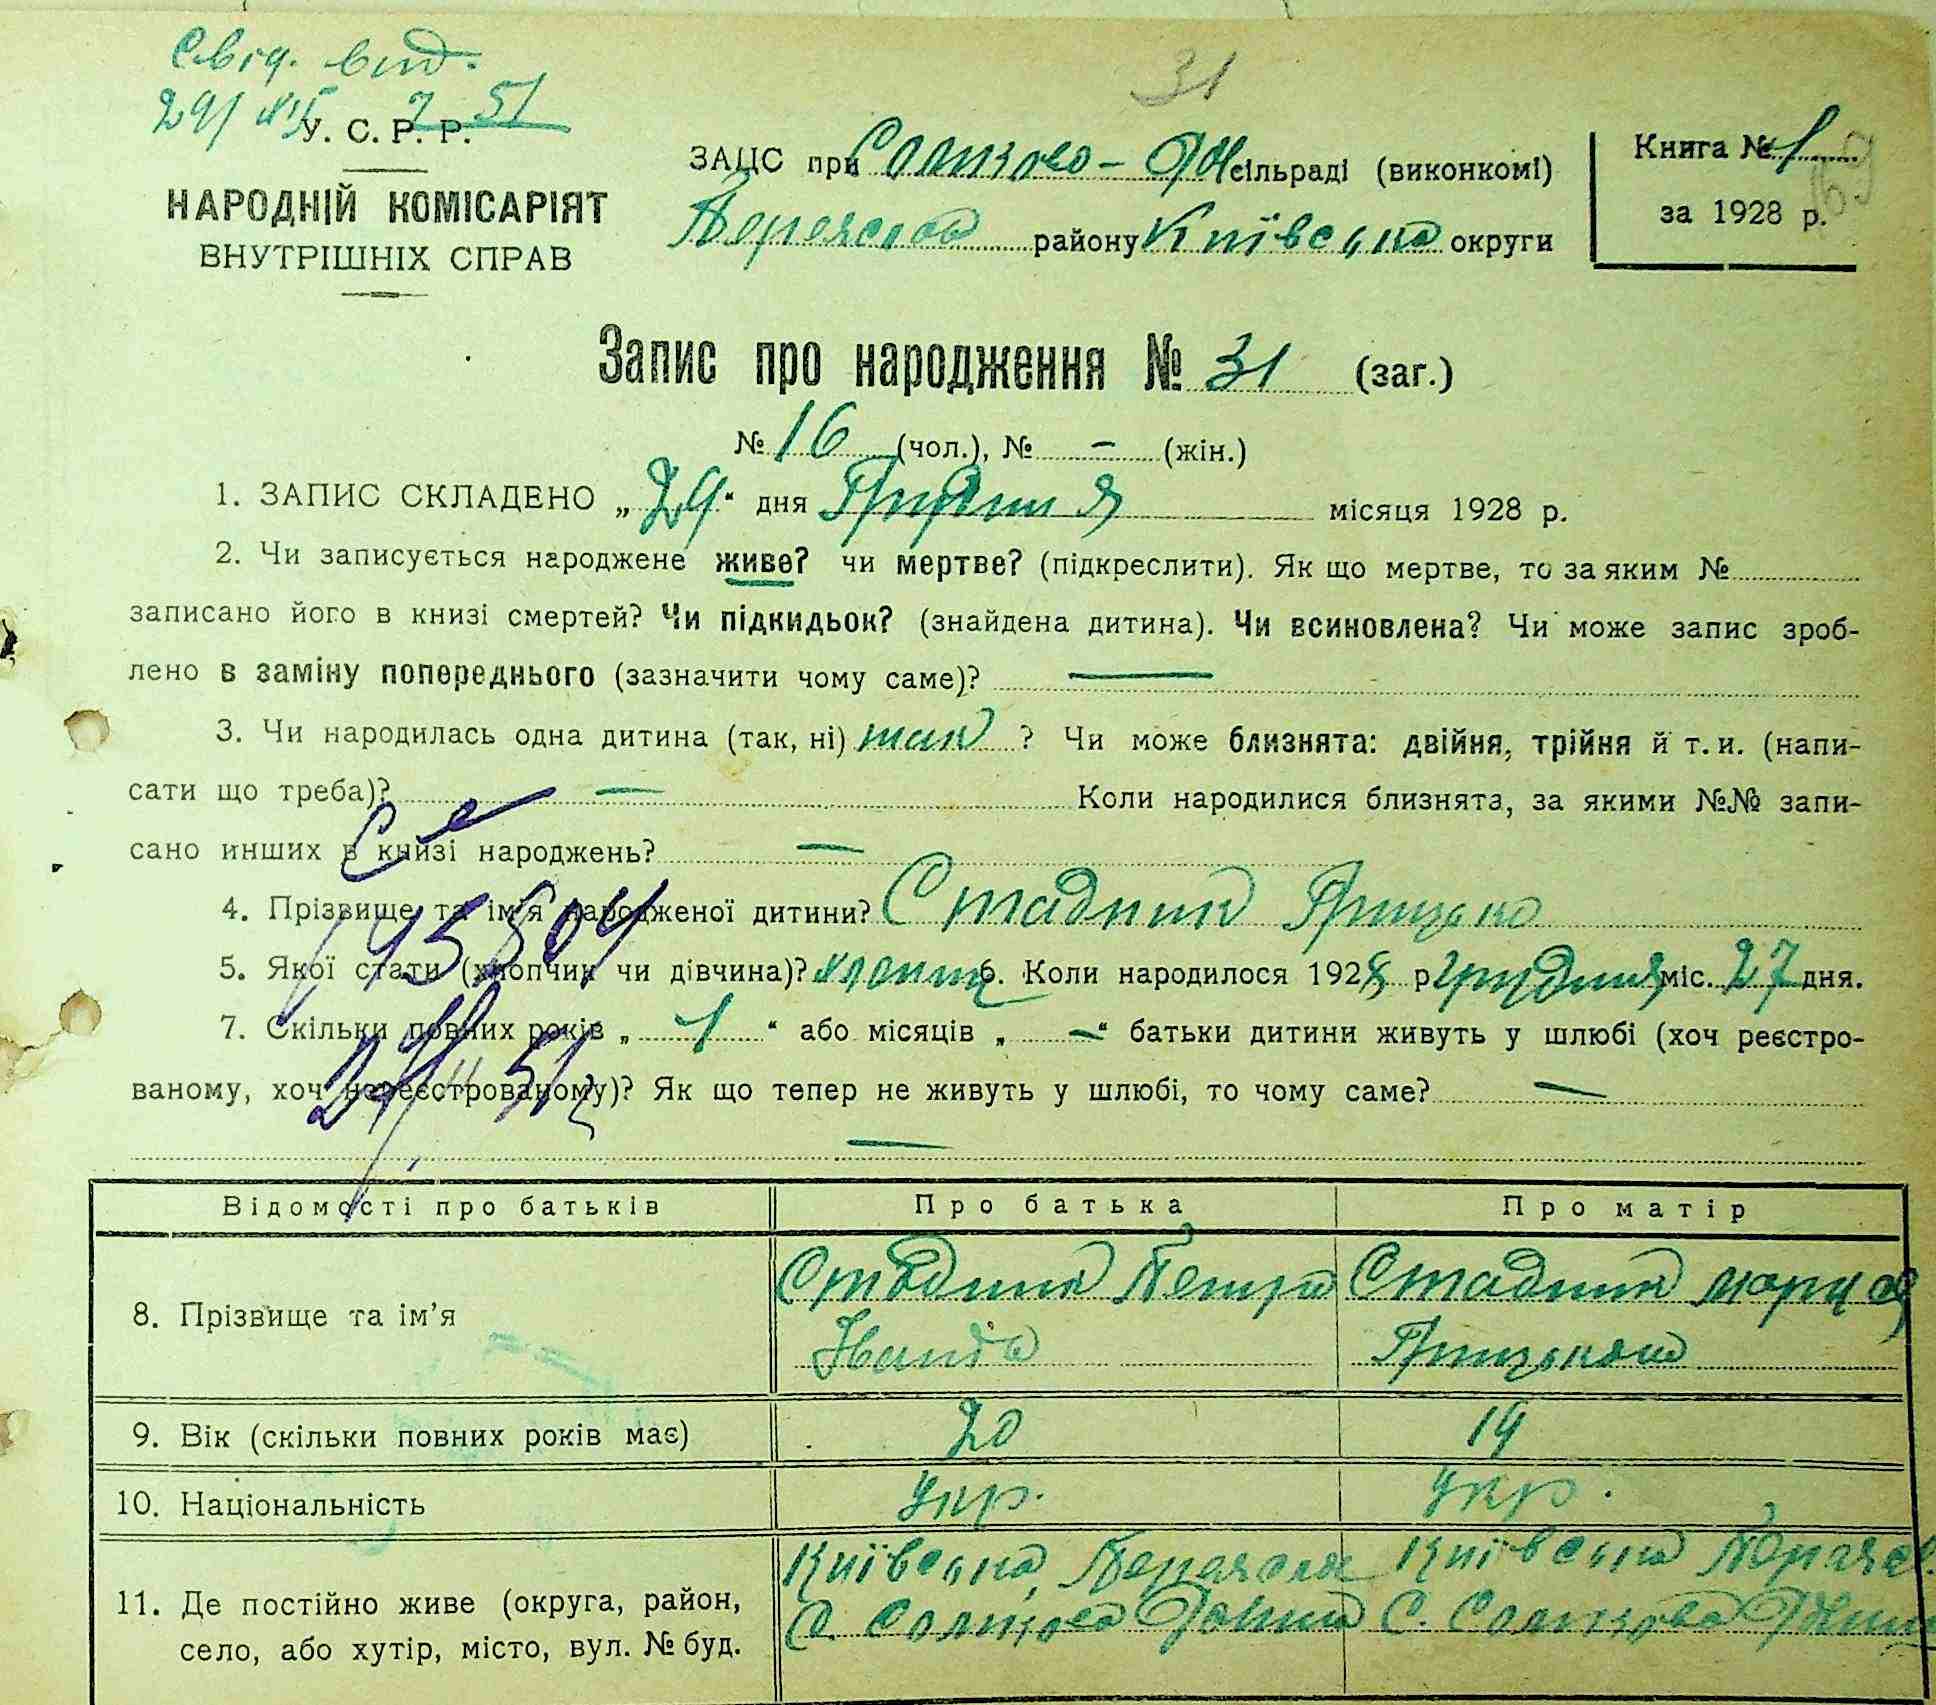 Свід. вид.
29/ XII 51
31
У. С. Р. Р.
НАРОДНІЙ КОМІСАРІЯТ
ВНУТРІШНІХ СПРАВ
ЗАЦС при сільраді (виконкомі)
Переяслав району Київська округи
Книга № 1
за 1928 р.
Запис про народження № 31 (заг.)
№ 16 (чол.), № – (жін.)
1. ЗАПИС СКЛАДЕНО „29“ дня Грудня місяця 1928 р.
2. Чи записується народжене живе? чи мертве? (підкреслити). Як що мертве, то за яким №
записано його в книзі смертей? Чи підкидьок? (знайдена дитина). Чи всиновлена? Чи може запис зроб-
лено в заміну попереднього (зазначити чому саме)? —
3. Чи народилась одна дитина (так, ні) так ? Чи може близнята: двійня, трійня й т. и. (напи-
сати що треба)? — Коли народилися близнята, за якими №№ запи-
сано инших в книзі народжень? —
4. Прізвище та ім'я народженої дитини? Стадник Грицько
5. Якої стати (хлопчик чи дівчина)? хлопець 6. Коли народилося 1928 р грудня міс. 27 дня.
7. Скільки повних років „ 1 “ або місяців „ – “ батьки дитини живуть у шлюбі (хоч реєстро-
ваному, хоч нереєстрованому)? Як що тепер не живуть у шлюбі, то чому саме? —
—
Відомості про батьків Про батька Про матір
8. Прізвище та ім'я Стадник Петро Стадник
9. Вік (скільки повних років має) 20 19
10. Національність Укр. Укр.
11. Де постійно живе (округа, район,
село, або хутір, місто, вул. № буд.
Київська, Київська